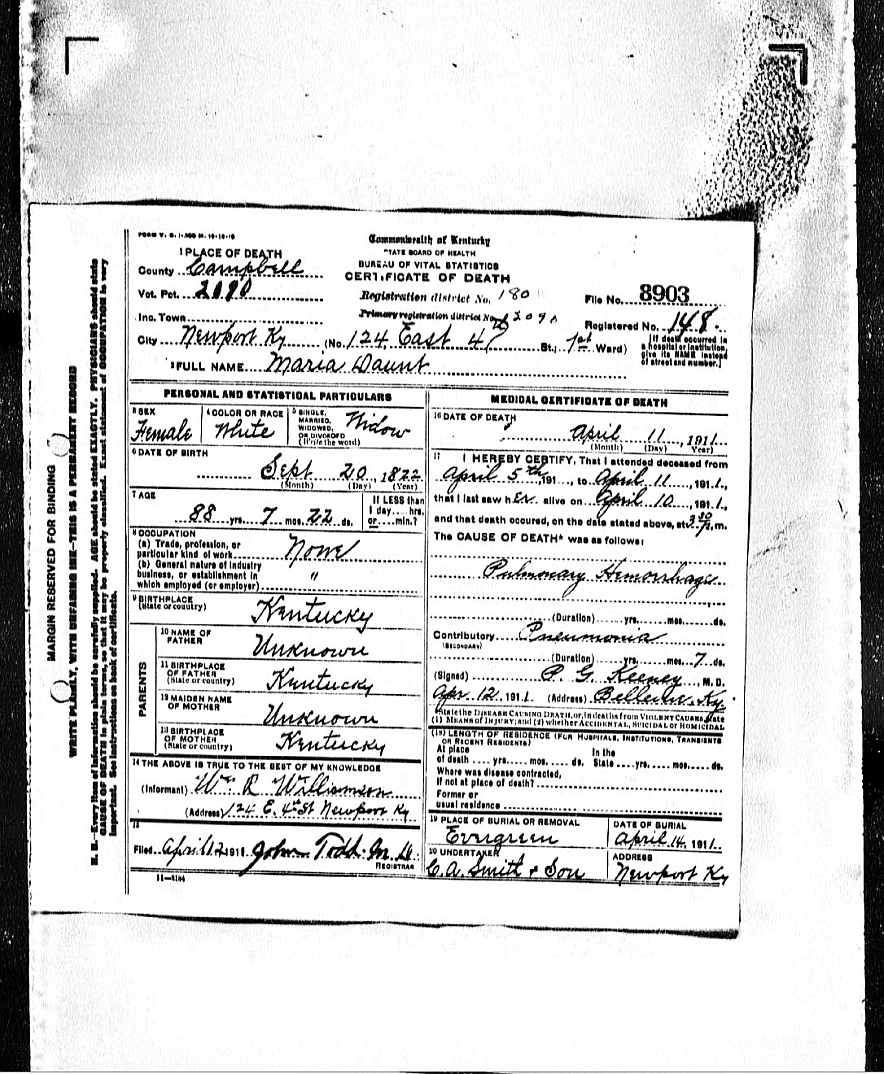 FORM V. S. 1-300 M. 10-10-10
Commonwealth of Kentucky
STATE BOARD OF HEALTH
BUREAU OF VITAL STATISTICS
CERTIFICATE OF DEATH
1 PLACE OF DEATH
County Campbell
Vot. Pct. 2090
Registration district No. 180
File No. 8903
Inc. Town
Primary registration district No. 2090
Registered No. 148.
City Newport Ky (No. 124 East 4th St.; 1st Ward)
[If death occurred in a hospital or institution, give its NAME instead of street and number.]
2 FULL NAME Maria Daunt
PERSONAL AND STATISTICAL PARTICULARS
3 SEX Female
4 COLOR OR RACE White
5 SINGLE, MARRIED, WIDOWED, OR DIVORCED (Write the word) Widow
6 DATE OF BIRTH
Sept 20, 1822
(Month) (Day) (Year)
7 AGE
88 yrs. 7 mos. 22 ds.
If LESS than 1 day.... hrs. or.... min.?
8 OCCUPATION
(a) Trade, profession, or particular kind of work None
(b) General nature of industry business, or establishment in which employed (or employer) "
9 BIRTHPLACE (State or country) Kentucky
PARENTS
10 NAME OF FATHER Unknown
11 BIRTHPLACE OF FATHER (State or country) Kentucky
12 MAIDEN NAME OF MOTHER Unknown
13 BIRTHPLACE OF MOTHER (State or country) Kentucky
14 THE ABOVE IS TRUE TO THE BEST OF MY KNOWLEDGE
(Informant) Wm R Williamson
(Address) 124 E. 4th St Newport Ky
15
Filed April 12 1911 John Todd M.D.
REGISTRAR
11-3184
MEDICAL CERTIFICATE OF DEATH
16 DATE OF DEATH
April 11, 1911
(Month) (Day) (Year)
17 I HEREBY CERTIFY, That I attended deceased from
April 5th, 191..., to April 11, 1911,
that I last saw her alive on April 10, 1911,
and that death occured, on the date stated above, at 3 30 P. m.
The CAUSE OF DEATH* was as follows:
Pulmonary Hemorrhage
(Duration) yrs. mos. ds.
Contributory Pneumonia
(SECONDARY)
(Duration) yrs. mos. 7 ds.
(Signed) P. G. Keeney, M. D.
Apr. 12, 1911. (Address) Bellevue, Ky.
*State the DISEASE CAUSING DEATH, or, in deaths from VIOLENT CAUSES, state
(1) MEANS OF INJURY; and (2) whether ACCIDENTAL, SUICIDAL OR HOMICIDAL
(18) LENGTH OF RESIDENCE (FOR HOSPITALS, INSTITUTIONS, TRANSIENTS
OR RECENT RESIDENTS)
At place of death .... yrs. .... mos. .... ds. In the State .... yrs. .... mos. .... ds.
Where was disease contracted,
if not at place of death?
Former or
usual residence
19 PLACE OF BURIAL OR REMOVAL
Evergreen
DATE OF BURIAL
April 14, 1911.
20 UNDERTAKER
C. A. Smith & Son
ADDRESS
Newport Ky
MARGIN RESERVED FOR BINDING
WRITE PLAINLY, WITH UNFADING INK—THIS IS A PERMANENT RECORD
N. B.—Every item of information should be carefully supplied. AGE should be stated EXACTLY. PHYSICIANS should state
CAUSE OF DEATH in plain terms, so that it may be properly classified. Exact statement of OCCUPATION is very
important. See instructions on back of certificate.